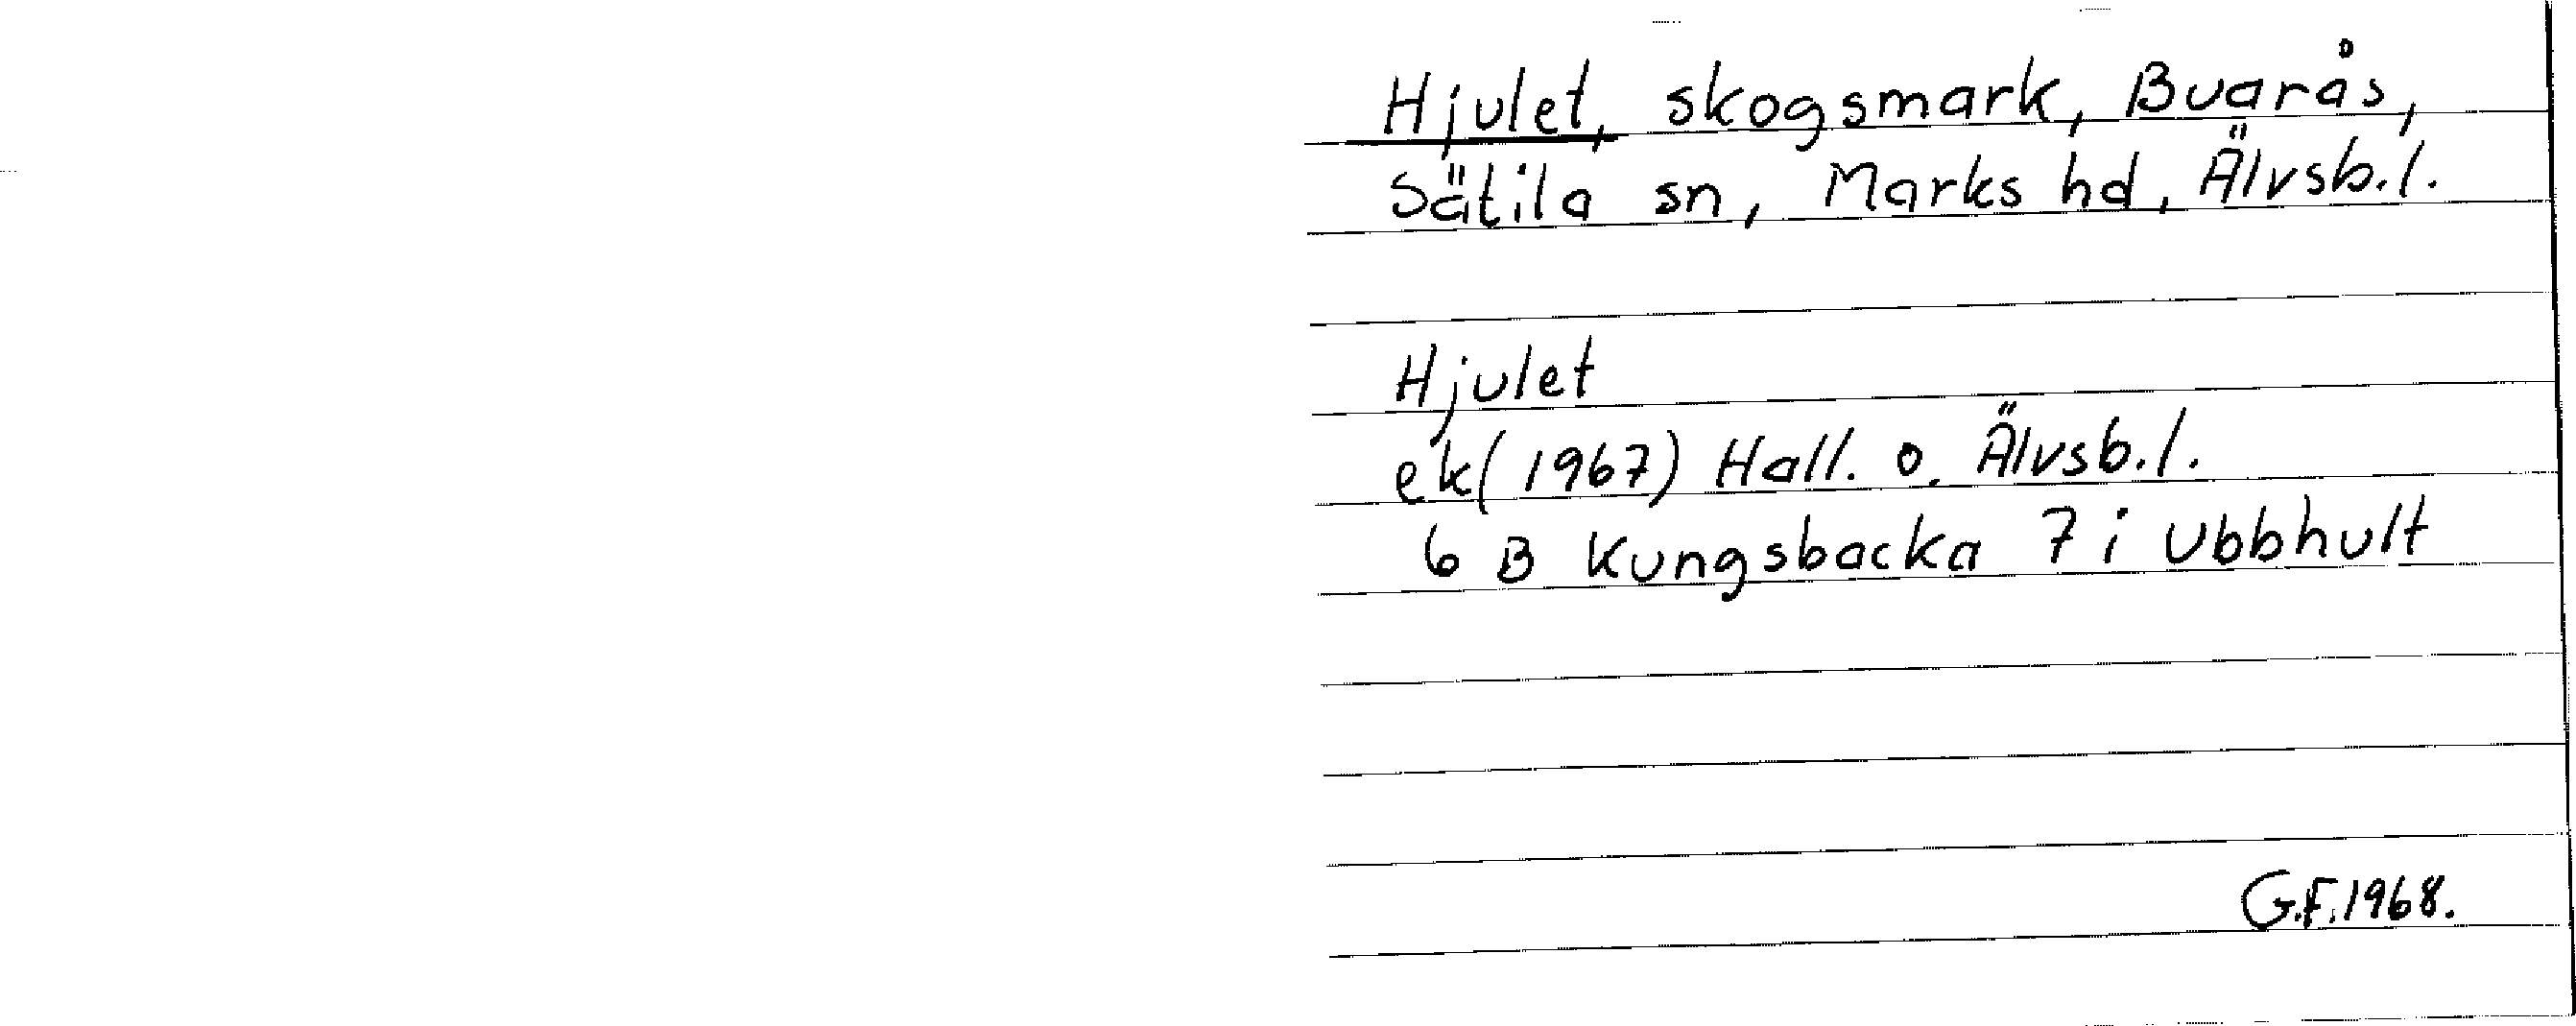 Hjulet, skogsmark, Buarås,
Sätila sn, Marks hd, Älvsb.l.
Hjulet
ek(1967) Hall. o. Älvsb.l.
6 B Kungsbacka 7 i Ubbhult
G.F.1968.